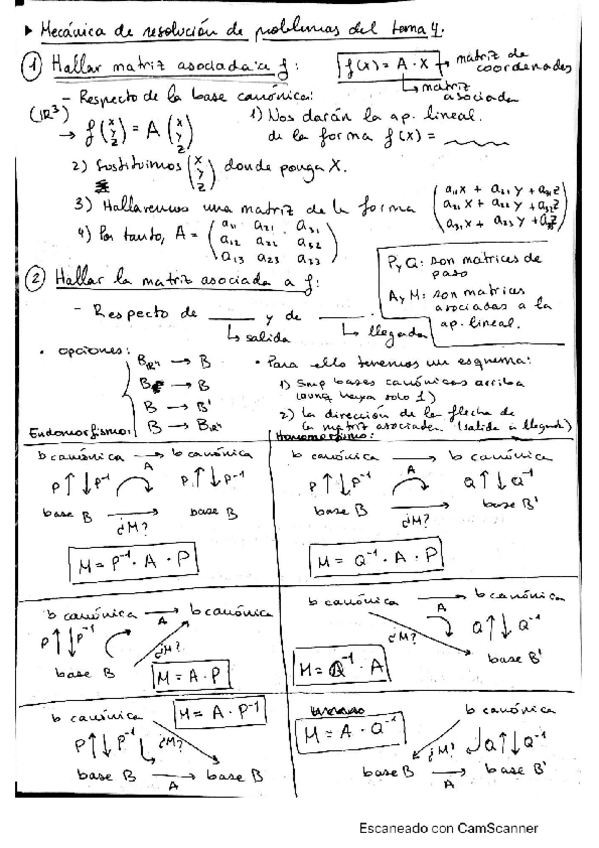 ▸ Mecánica de resolución de problemas del tema 4.
① Hallar matriz asociada a f: f(x) = A · X → matriz de coordenadas
↳ matriz asociada
- Respecto de la base canónica:
(ℝ³) → f(x y z) = A (x y z)
1) Nos darán la ap. lineal.
de la forma f(x) =
2) Sustituimos (x y z) donde ponga X.
3) Hallaremos una matriz de la forma (a11 x + a21 y + a31 z
4) Por tanto, A = (a11 a21 a31
a12 a22 a32
a13 a23 a33)
② Hallar la matriz asociada a f:
P y Q: son matrices de paso
A y M: son matrices asociadas a la ap. lineal.
- Respecto de ____ y de ____.
↳ salida ↳ llegada
• opciones:
B → B
B → B'
Endomorfismo:
• Para ello tenemos un esquema:
1) Smp bases canónicas arriba
(aunq haya solo 1)
2) la dirección de la flecha de
la matriz asociada (salida a llegada)
b canónica → b canónica
A
P↑↓P⁻¹ P↑↓P⁻¹
base B → base B
¿M?
M = P⁻¹ · A · P
b canónica → b canónica
A
P↑↓P⁻¹ Q↑↓Q⁻¹
base B → base B'
¿M?
M = Q⁻¹ · A · P
b canónica → b canónica
A
P↑↓P⁻¹
¿M?
base B
M = A · P
b canónica → b canónica
A
¿M? Q↑↓Q⁻¹
base B'
M = Q⁻¹ · A
M = A · P⁻¹
b canónica
P↑↓P⁻¹ ¿M?
base B → base B
A
M = A · Q⁻¹
b canónica
¿M? Q↑↓Q⁻¹
base B → base B'
A
Escaneado con CamScanner